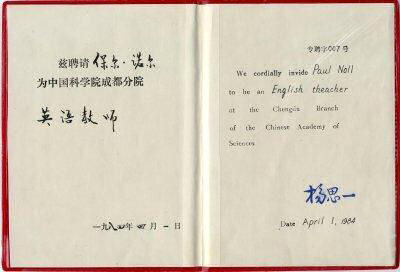 兹聘请 保尔·诺尔
为中国科学院成都分院
英语教师
一九八四年四月一日
专聘字007号
We cordially invide Paul Noll
to be an English theacher
at the Chengdu Branch
of the Chinese Academy of
Sciences
杨思一
Date April 1, 1984